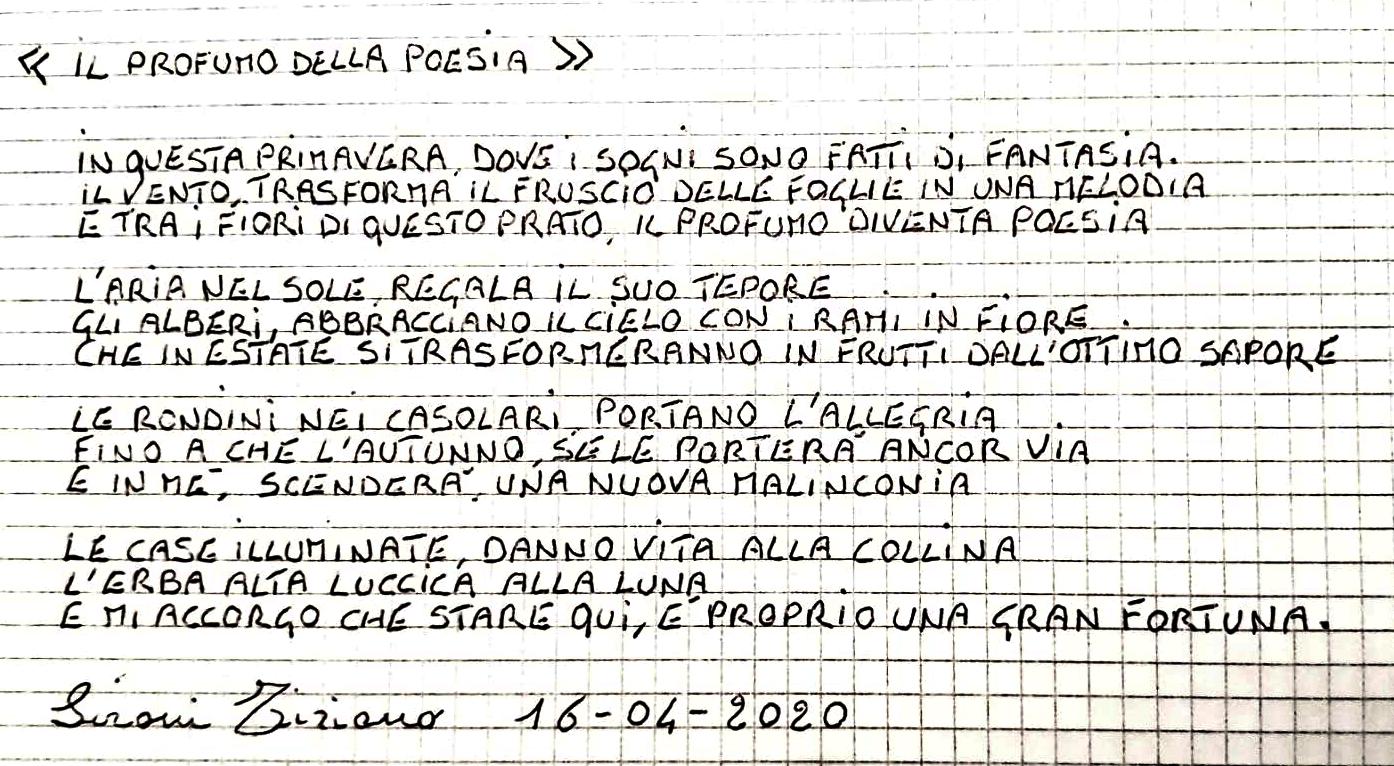 « IL PROFUMO DELLA POESIA »
IN QUESTA PRIMAVERA, DOVE I SOGNI SONO FATTI DI FANTASIA.
IL VENTO, TRASFORMA IL FRUSCIO DELLE FOGLIE IN UNA MELODIA
E TRA I FIORI DI QUESTO PRATO, IL PROFUMO DIVENTA POESIA
L'ARIA NEL SOLE, REGALA IL SUO TEPORE
GLI ALBERI, ABBRACCIANO IL CIELO CON I RAMI IN FIORE.
CHE IN ESTATE SI TRASFORMERANNO IN FRUTTI DALL'OTTIMO SAPORE
LE RONDINI NEI CASOLARI, PORTANO L'ALLEGRIA
FINO A CHE L'AUTUNNO, SE LE PORTERA' ANCOR VIA
E IN ME', SCENDERA', UNA NUOVA MALINCONIA
LE CASE ILLUMINATE, DANNO VITA ALLA COLLINA
L'ERBA ALTA LUCCICA ALLA LUNA
E MI ACCORGO CHE STARE QUI, E' PROPRIO UNA GRAN FORTUNA.
Sironi Tiziano 16-04-2020